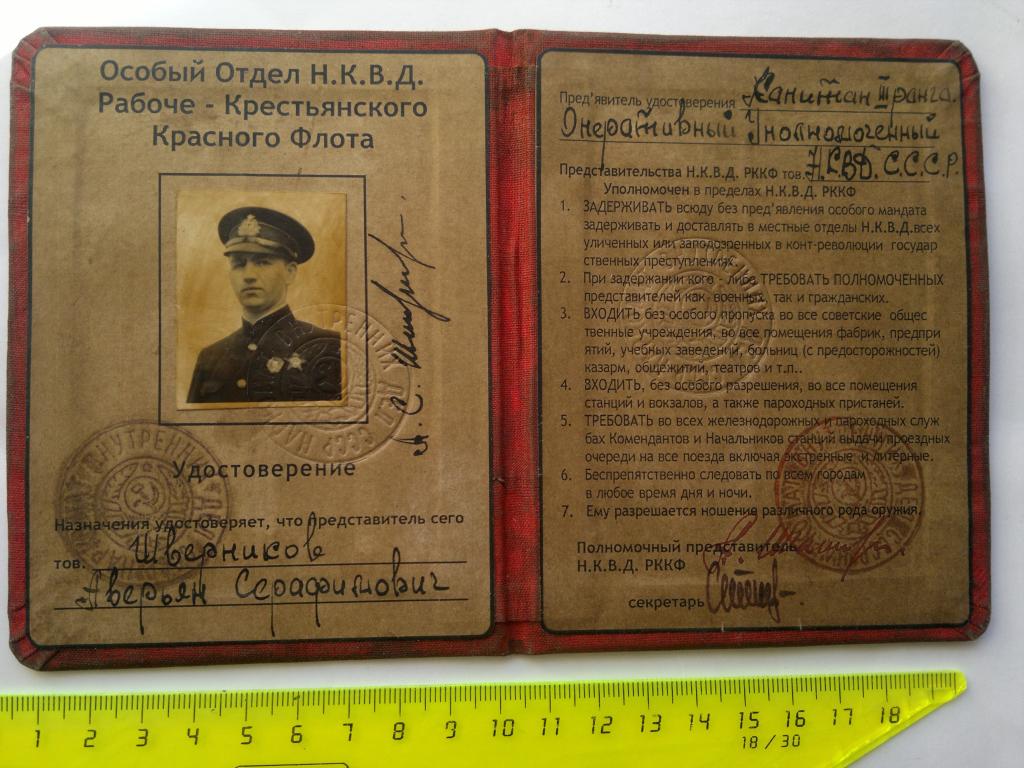 Особый Отдел Н.К.В.Д.
Рабоче - Крестьянского
Красного Флота
Удостоверение
Назначения удостоверяет, что Представитель сего
тов. Шверников
Аверьян Серафимович
Пред'явитель удостоверения Капитан III ранга.
Оперативный Уполномоченный
Представительства Н.К.В.Д. РККФ тов. Н.К.В.Д. С.С.С.Р.
Уполномочен в пределах Н.К.В.Д. РККФ
1. ЗАДЕРЖИВАТЬ всюду без пред'явления особого мандата
задерживать и доставлять в местные отделы Н.К.В.Д.всех
уличенных или заподозренных в конт-революции государ
ственных преступлениях.
2. При задержании кого - либо ТРЕБОВАТЬ ПОЛНОМОЧЕННЫХ
представителей как военных, так и гражданских.
3. ВХОДИТЬ без особого пропуска во все советские общес
твенные учреждения, во все помещения фабрик, предпри
ятий, учебных заведений, больниц (с предосторожностей)
казарм, общежитий, театров и т.п..
4. ВХОДИТЬ, без особого разрешения, во все помещения
станций и вокзалов, а также пароходных пристаней.
5. ТРЕБОВАТЬ во всех железнодорожных и пароходных служ
бах Комендантов и Начальников станций выдачи проездных
очереди на все поезда включая экстренные и литерные.
6. Беспрепятственно следовать по всем городам
в любое время дня и ночи.
7. Ему разрешается ношение различного рода оружия.
Полномочный представитель
Н.К.В.Д. РККФ
секретарь
1 2 3 4 5 6 7 8 9 10 11 12 13 14 15 16 17 18
18 / 30